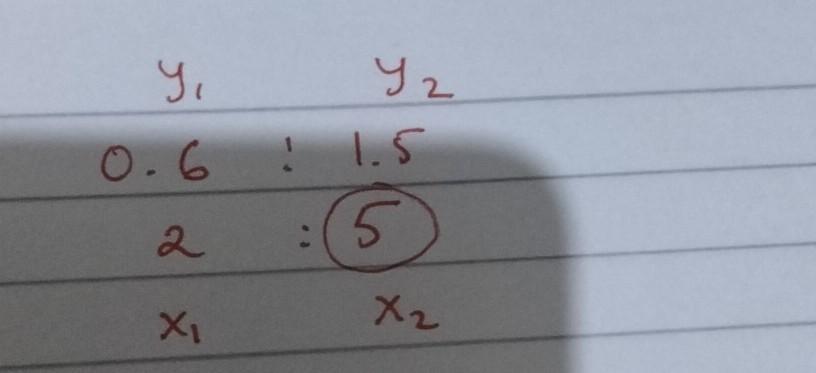 y₁ y₂
0.6 : 1.5
2 : 5
x₁ x₂